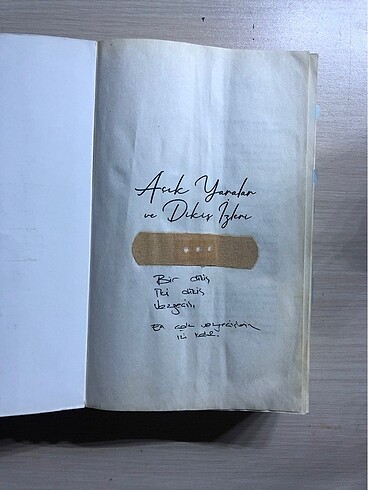 Açık Yaralar
ve Dikiş İzleri
Bir dikiş
iki dikiş
vazgeçiş.
En çok vazgeçişin
izi kalır.